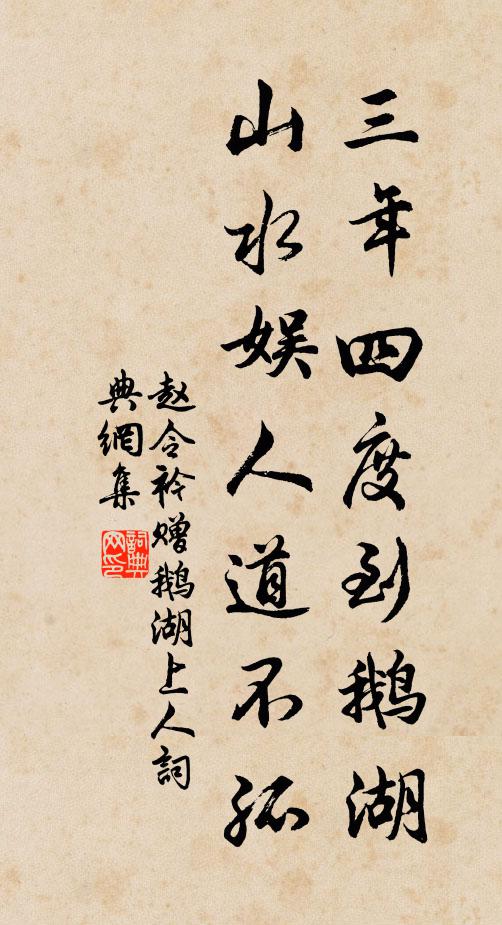 三年四度到鹅湖
山水娱人道不孤
赵令衿赠鹅湖上人詞
典網集
詞典
网印